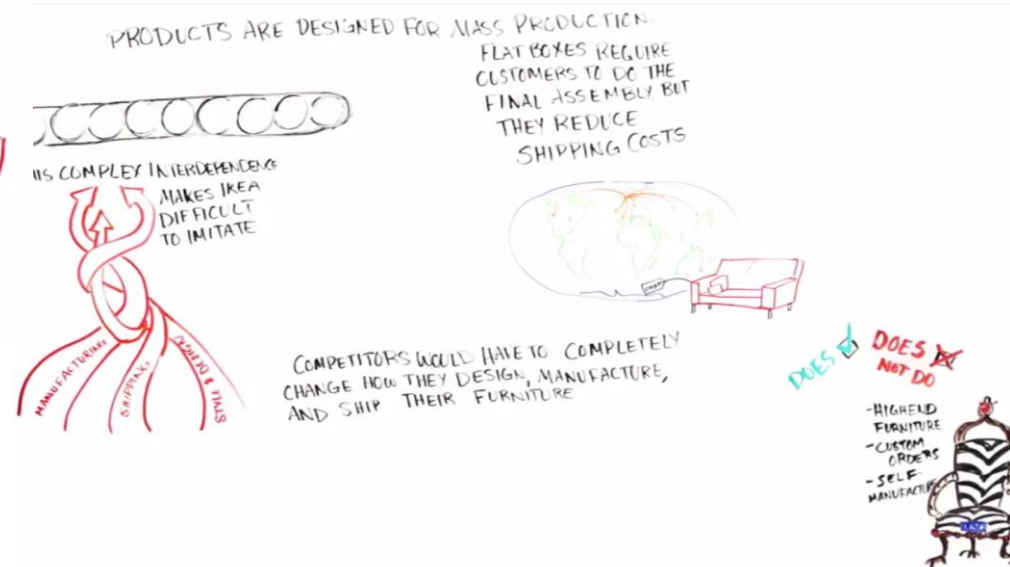 PRODUCTS ARE DESIGNED FOR MASS PRODUCTION.
FLAT BOXES REQUIRE
CUSTOMERS TO DO THE
FINAL ASSEMBLY, BUT
THEY REDUCE
SHIPPING COSTS
HIS COMPLEX INTERDEPENDENCE
MAKES IKEA
DIFFICULT
TO IMITATE
MANUFACTURING
SHIPPING
STYLE & DESIGN
COMPETITORS WOULD HAVE TO COMPLETELY
CHANGE HOW THEY DESIGN, MANUFACTURE,
AND SHIP THEIR FURNITURE
DOES
DOES
NOT DO
- HIGHEND
FURNITURE
- CUSTOM
ORDERS
- SELF
MANUFACTURE